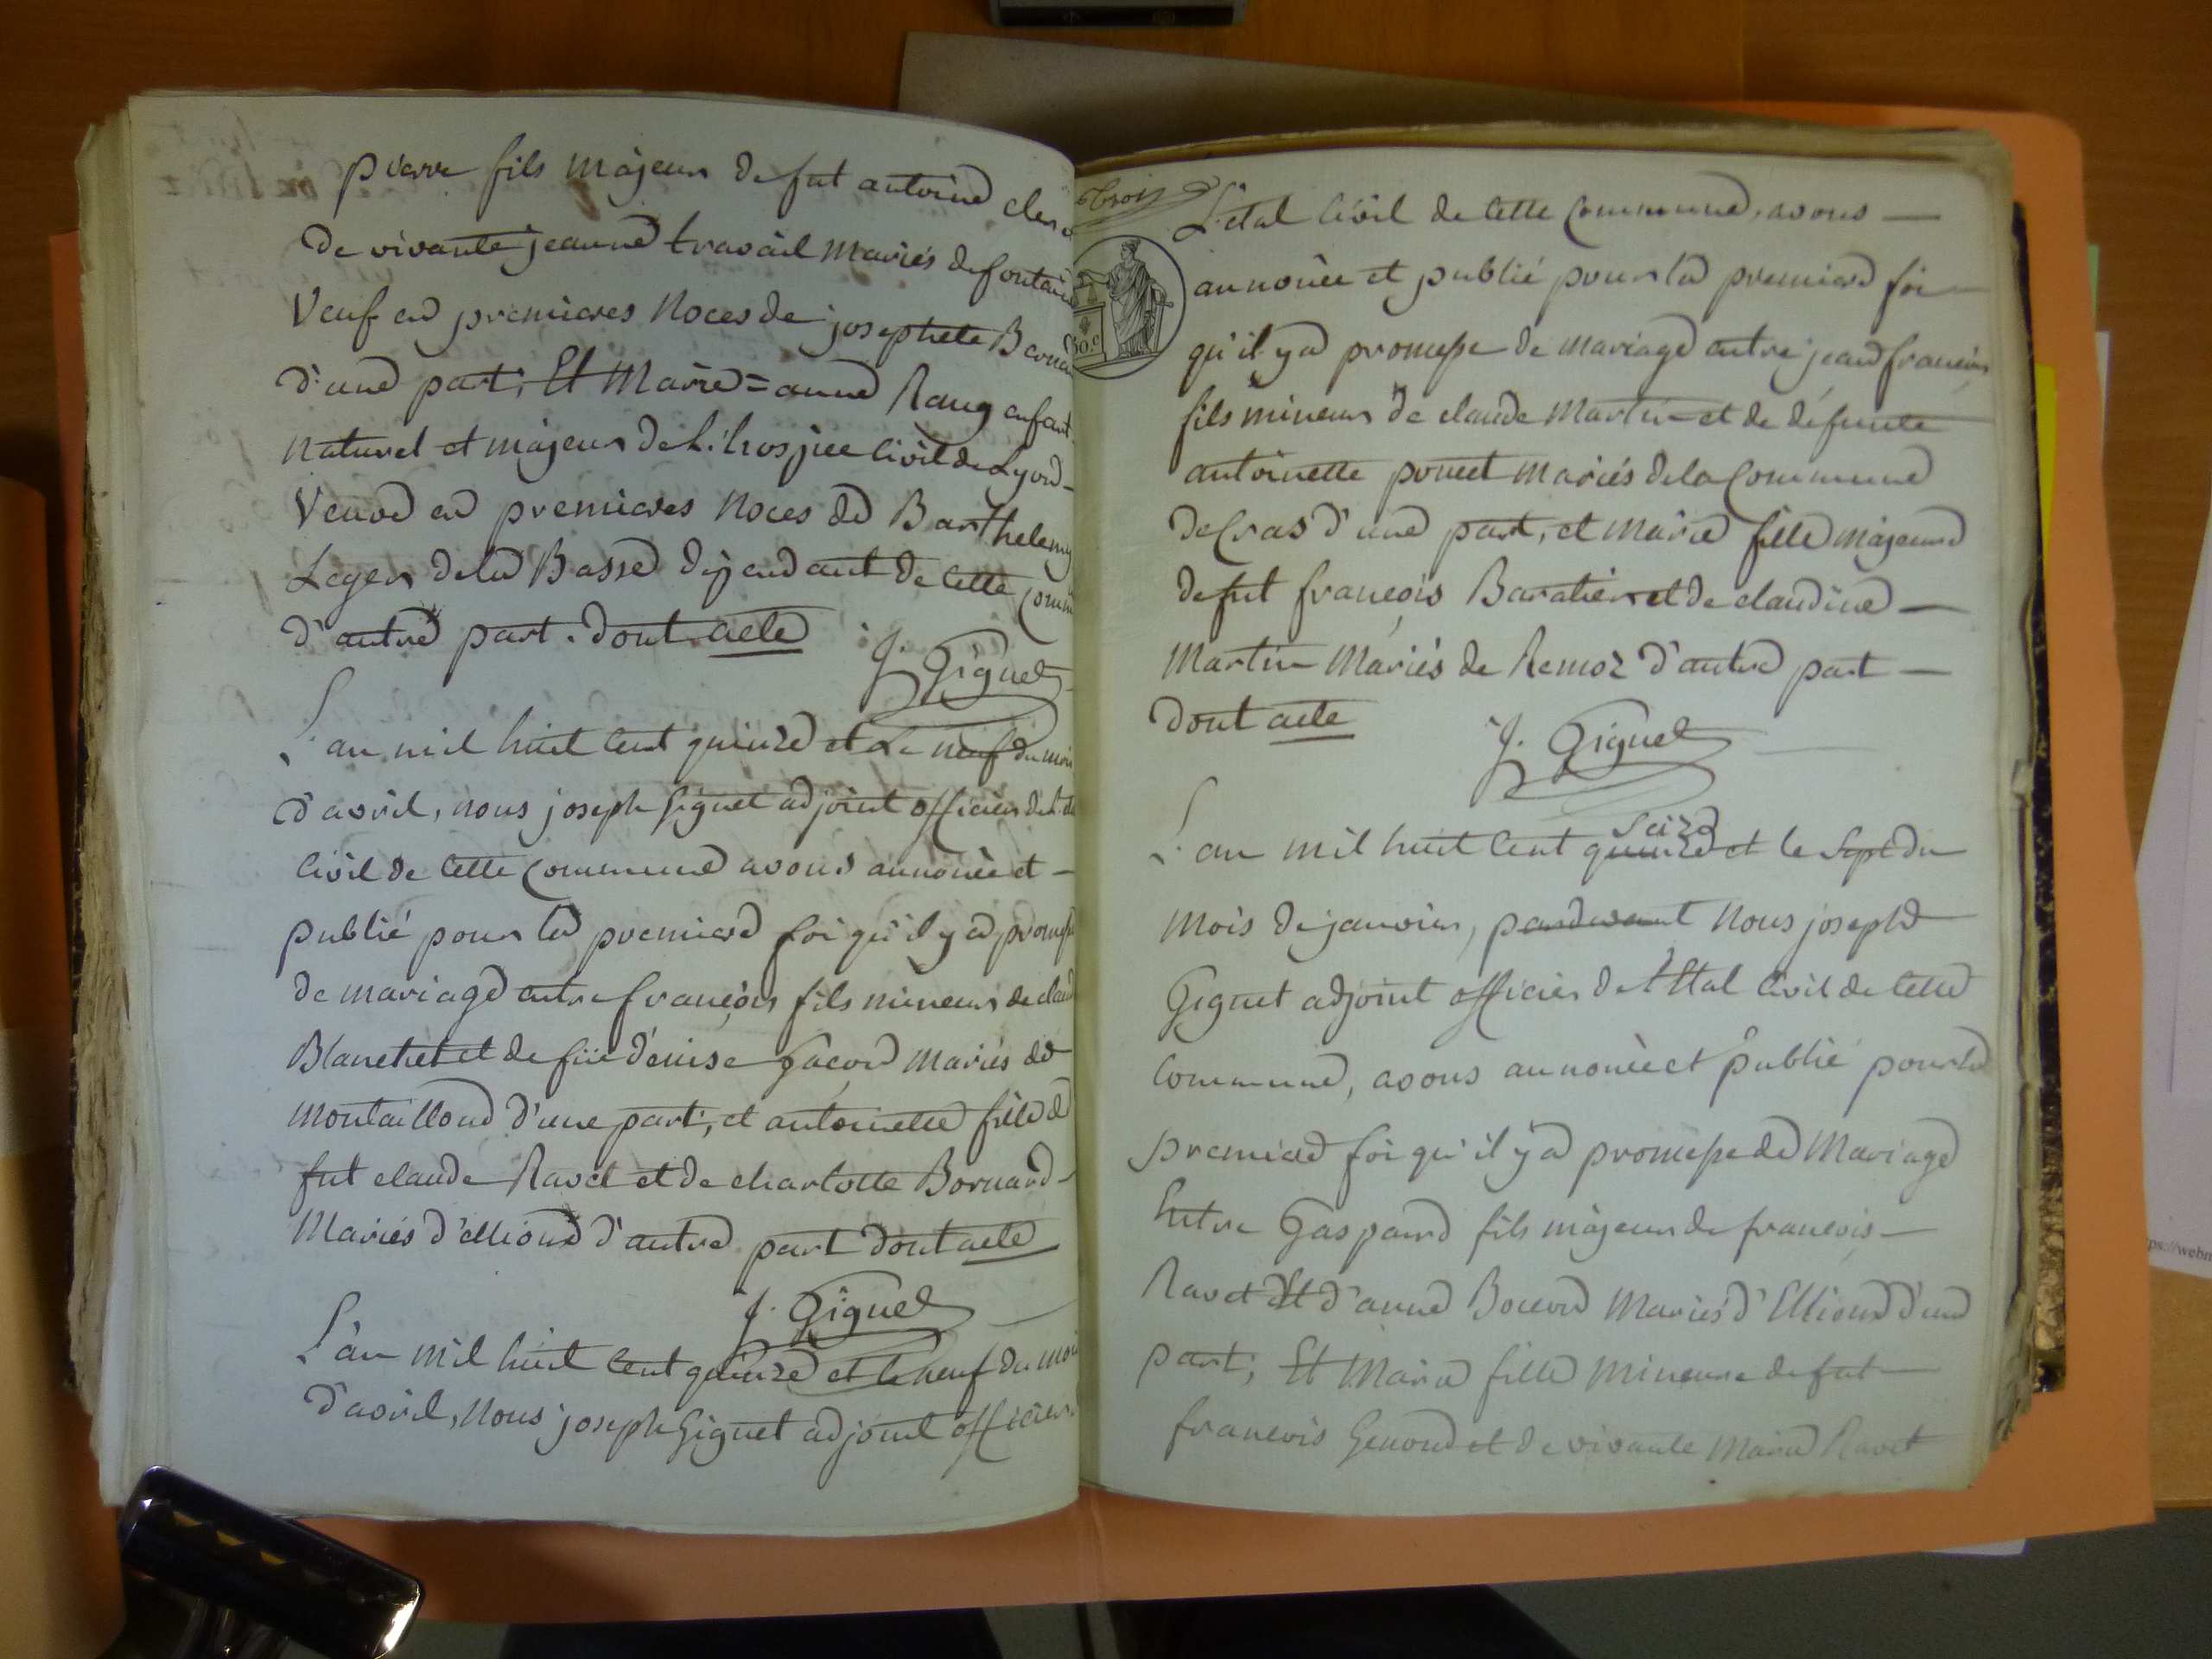 pierre fils majeur de fut antoine
de vivante jeanne travail mariés de fontaine
Veuf en premieres Noces de josephete
d'une part, Et Marie=anne Rang enfant
naturel et majeur de L'hospice Civil de Lyon
Veuve en premieres Noces de Barthelemy
Leger de la Basse dependant de Cette
d'autre part. dont acte
J. Giguet
L'an mil huit Cent quinze et Le neuf du mois
d'avril, nous joseph Giguet adjoint officier de
Civil de Cette Commune avons annoncé et
publié pour la premiere foi qu'il y a promesse
de mariage entre françois fils mineur de
Blanchet et de füe denise Gacon Mariés de
Montaillond d'une part, et antoinette fille de
fut claude Ravet et de charlotte Bornard
Mariés d'elliond d'autre part dont acte
J. Giguet
L'an mil huit Cent quinze et le neuf du mois
d'avril, Nous joseph Giguet adjoint officier
trois
50 c.
L'etat Civil de Cette Commune, avons
annoncé et publié pour la premiere foi
qu'il y a promesse de mariage entre jean françois
fils mineur de claude Martin et de défunte
antoinette poncet Mariés de la Commune
de Cras d'une part, et Marie fille majeure
de fut françois Baratier et de claudine
Martin Mariés de Remoz d'autre part
dont acte
J. Giguet
Seize
L'an mil huit Cent quinze et le Sept du
Mois de janvier, pardevant Nous joseph
Giguet adjoint officier de l'Etat Civil de Cette
Commune, avons annoncé et publié pour la
premiere foi qu'il y a promesse de Mariage
Entre Gaspard fils majeur de françois
Ravet Et d'anne Mariés d'Elliond d'une
part, Et Marie fille Mineure de fut
françois Genoud et de vivante Marie Ravet